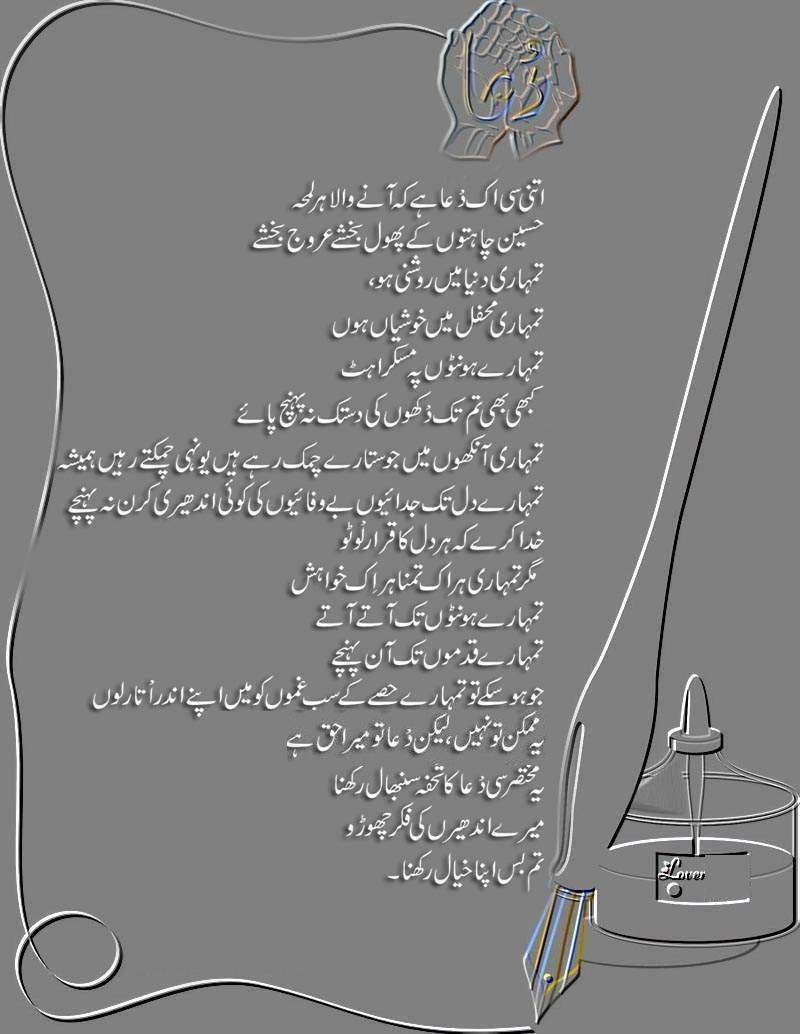 دُعا
اتنی سی اک دُعا ہے کہ آنے والا ہر لمحہ
حسین چاہتوں کے پھول بخشے عروج بخشے
تمہاری دنیا میں روشنی ہو،
تمہاری محفل میں خوشیاں ہوں
تمہارے ہونٹوں پہ مسکراہٹ
کبھی بھی تم تک دُکھوں کی دستک نہ پہنچ پائے
تمہاری آنکھوں میں جو ستارے چمک رہے ہیں یونہی چمکتے رہیں ہمیشہ
تمہارے دل تک جدائیوں بے وفائیوں کی کوئی اندھیری کرن نہ پہنچے
خدا کرے کہ ہر دل کا قرار لُوٹو
مگر تمہاری ہر اک تمنا ہر اِک خواہش
تمہارے ہونٹوں تک آتے آتے
تمہارے قدموں تک آن پہنچے
جو ہو سکے تو تمہارے حصے کے سب غموں کو میں اپنے اندر اُتار لوں
یہ ممکن تو نہیں، لیکن دُعا تو میرا حق ہے
یہ مختصر سی دُعا کا تحفہ سنبھال رکھنا
میرے اندھیرں کی فکر چھوڑو
تم بس اپنا خیال رکھنا۔
Lover